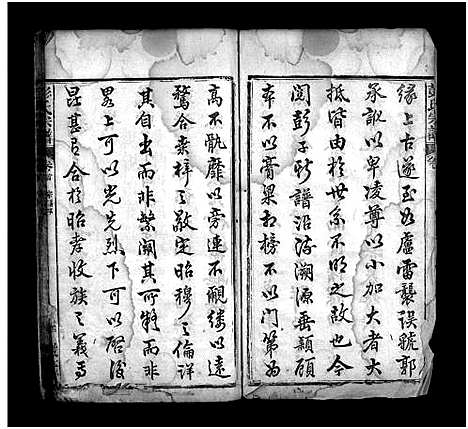 緣上古遂至如盧雷襲誤號郭
承訛以卑凌尊以小加大者大
抵皆由於世系不明之故也今
閱彭子新譜沿流溯源垂類顧
本不以膏粱相榜不以門第為
高不骫靡以旁連不覼縷以遠
騖合桑梓之敬定昭穆之倫詳
其自出而非禁闕其可疑而非
畧上可以光先烈下可以啟後
昆甚有合於昭孝收族之義焉
彭氏宗譜